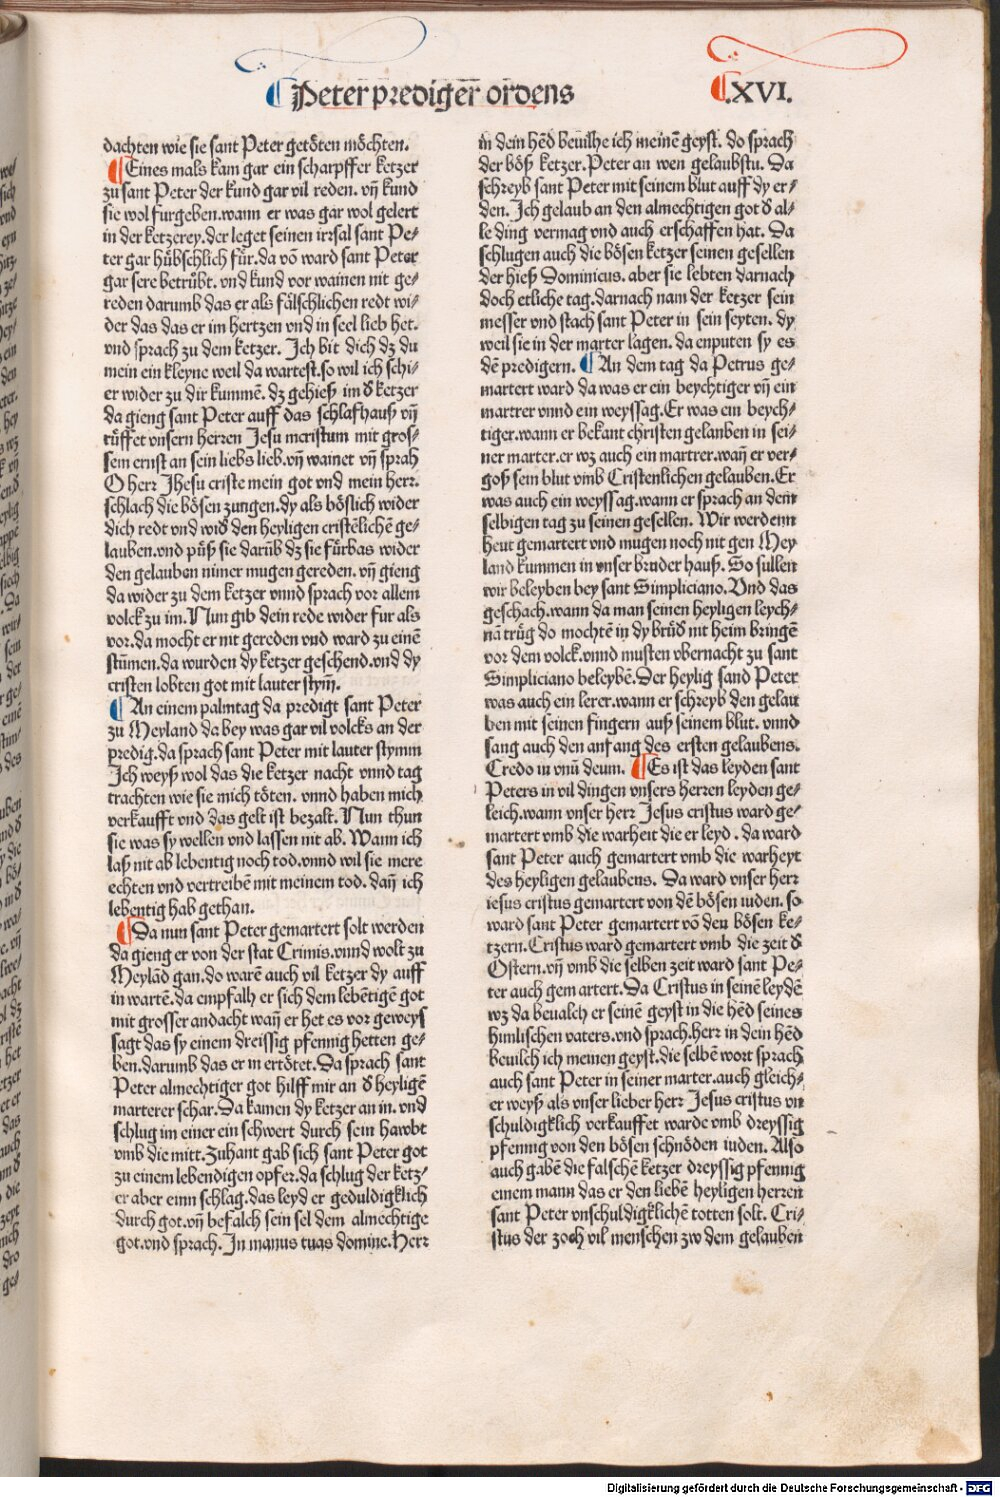 ¶ Peter prediger̄ ordens
¶ .XVI.
dachten wie sie sant Peter getöten möchten.
¶ Eines mals kam gar ein scharpffer ketzer
zu sant Peter der kund gar vil reden. vn̄ kund
sie wol furgeben.wann er was gar wol gelert
in der ketzerey.der leget seinen irrsal sant Pe⸗
ter gar hübschlich für.da vō ward sant Peter
gar sere betrübt. vnd kund vor wainen nit ge⸗
reden darumb das er als fälschlichen redt wi⸗
der das das er im hertzen vnd in seel lieb het.
vnd sprach zu dem ketzer. Ich bit dich dz du
mein ein kleyne weil da wartest.so wil ich schi⸗
er wider zu dir kummē. dz gehieß im d̄ ketzer
da gieng sant Peter auff das schlafhauß vn̄
rüffet vnsern herren Jesu mcristum mit gros⸗
sem ernst an sein liebs lieb.vn̄ wainet vn̄ sprah
O herr Jhesu criste mein got vnd mein herr.
schlach die bösen zungen.dy als böslich wider
dich redt vnd wid̄ den heyligen cristēlichē ge⸗
lauben.vnd püß sie darūb dz sie fürbas wider
den gelauben nimer mugen gereden. vn̄ gieng
da wider zu dem ketzer vnnd sprach vor allem
volck zu im. Nun gib dein rede wider fur als
vor.da mocht er nit gereden vnd ward zu einē
stūmen.da wurden dy ketzer geschend.vnd dy
cristen lobten got mit lauter stym̄.
¶ An einem palmtag da predigt sant Peter
zu Meyland da bey was gar vil volcks an der
predig.da sprach sant Peter mit lauter stymm
Ich weyß wol das die ketzer nacht vnnd tag
trachten wie sie mich töten. vnnd haben mich
verkaufft vnd das gelt ist bezalt. Nun thun
sie was sy wellen vnd lassen nit ab. Wann ich
laß nit ab lebentig noch tod.vnnd wil sie mere
echten vnd vertreibē mit meinem tod. dan̄ ich
lebentig hab gethan.
¶ Da nun sant Peter gemartert solt werden
da gieng er von der stat Crimis.vnnd wolt zu
Meylād gan.do warē auch vil ketzer dy auff
in wartē.da empfalh er sich dem lebētigē got
mit grosser andacht wan̄ er het es vor geweys
sagt das sy einem dreissig pfennig hetten ge⸗
ben.darumb das er in ertötet.Da sprach sant
Peter almechtiger got hilff mir an d̄ heyligē
marterer schar.Da kamen dy ketzer an in. vnd
schlug im einer ein schwert durch sein hawbt
vmb die mitt.Zuhant gab sich sant Peter got
zu einem lebendigen opfer.da schlug der ketz⸗
er aber einn schlag.das leyd er geduldigklich
durch got.vn̄ befalch sein sel dem almechtige
got.vnd sprach. In manus tuas domine.Herr
in dein hēd beuilhe ich meinē geyst. do sprach
der böß ketzer.Peter an wen gelaubstu. Da
schreyb sant Peter mit seinem blut auff dy er⸗
den. Ich gelaub an den almechtigen got d̄ al⸗
le ding vermag vnd auch erschaffen hat. Da
schlugen auch die bösen ketzer seinen gesellen
der hieß Dominicus. aber sie lebten darnach
doch etliche tag.darnach nam der ketzer sein
messer vnd stach sant Peter in sein seyten. dy
weil sie in der marter lagen. da enputen sy es
dē predigern. ¶ An dem tag da Petrus ge⸗
martert ward da was er ein beychtiger vn̄ ein
martrer vnnd ein weyssag.Er was ein beych⸗
tiger.wann er bekant christen gelanben in sei⸗
ner marter.er wz auch ein martrer.wan̄ er ver⸗
goß sein blut vmb Cristenlichen gelauben.Er
was auch ein weyssag.wann er sprach an dem
selbigen tag zu seinen gesellen. Wir werdenn
heut gemartert vnd mugen noch nit gen Mey
land kummen in vnser bruder hauß. So sullen
wir beleyben bey sant Simpliciano.Vnd das
geschach.wann da man seinen heyligen leych⸗
nā trüg do mochtē in dy brüd̄ nit heim bringē
vor dem volck.vnnd musten vbernacht zu sant
Simpliciano beleybē.Der heylig sand Peter
was auch ein lerer.wann er schreyb den gelau
ben mit seinen fingern auß seinem blut. vnnd
sang auch den anfang des ersten gelaubens.
Credo in vnū deum. ¶ Es ist das leyden sant
Peters in vil dingen vnsers herren leyden ge⸗
leich.wann vnser herr Jesus cristus ward ge⸗
martert vmb die warheit die er leyd . da ward
sant Peter auch gemartert vmb die warheyt
des heyligen gelaubens. Da ward vnser herr
iesus cristus gemartert von dē bösen iuden. so
ward sant Peter gemartert vō den bösen ke⸗
tzern.Cristus ward gemartert vmb die zeit d̄
Ostern.vn̄ vmb die selben zeit ward sant Pe⸗
ter auch gem artert.Da Cristus in seinē leydē
wz da beualch er seinē geyst in die hēd seines
himlischen vaters.vnd sprach.herr in dein hēd
beuilch ich meinen geyst.die selbē wort sprach
auch sant Peter in seiner marter.auch gleich⸗
er weyß als vnser lieber herr Jesus cristus vn
schuldigklich verkauffet warde vmb dreyssig
pfennig von den bösen schnöden iuden. Also
auch gabē die falschē ketzer dreyssig pfennig
einem mann das er den liebē heyligen herren
sant Peter vnschuldigklichē totten solt. Cri⸗
stus der zoch vil menschen zw dem gelauben
Digitalisierung gefördert durch die Deutsche Forschungsgemeinschaft - DFG